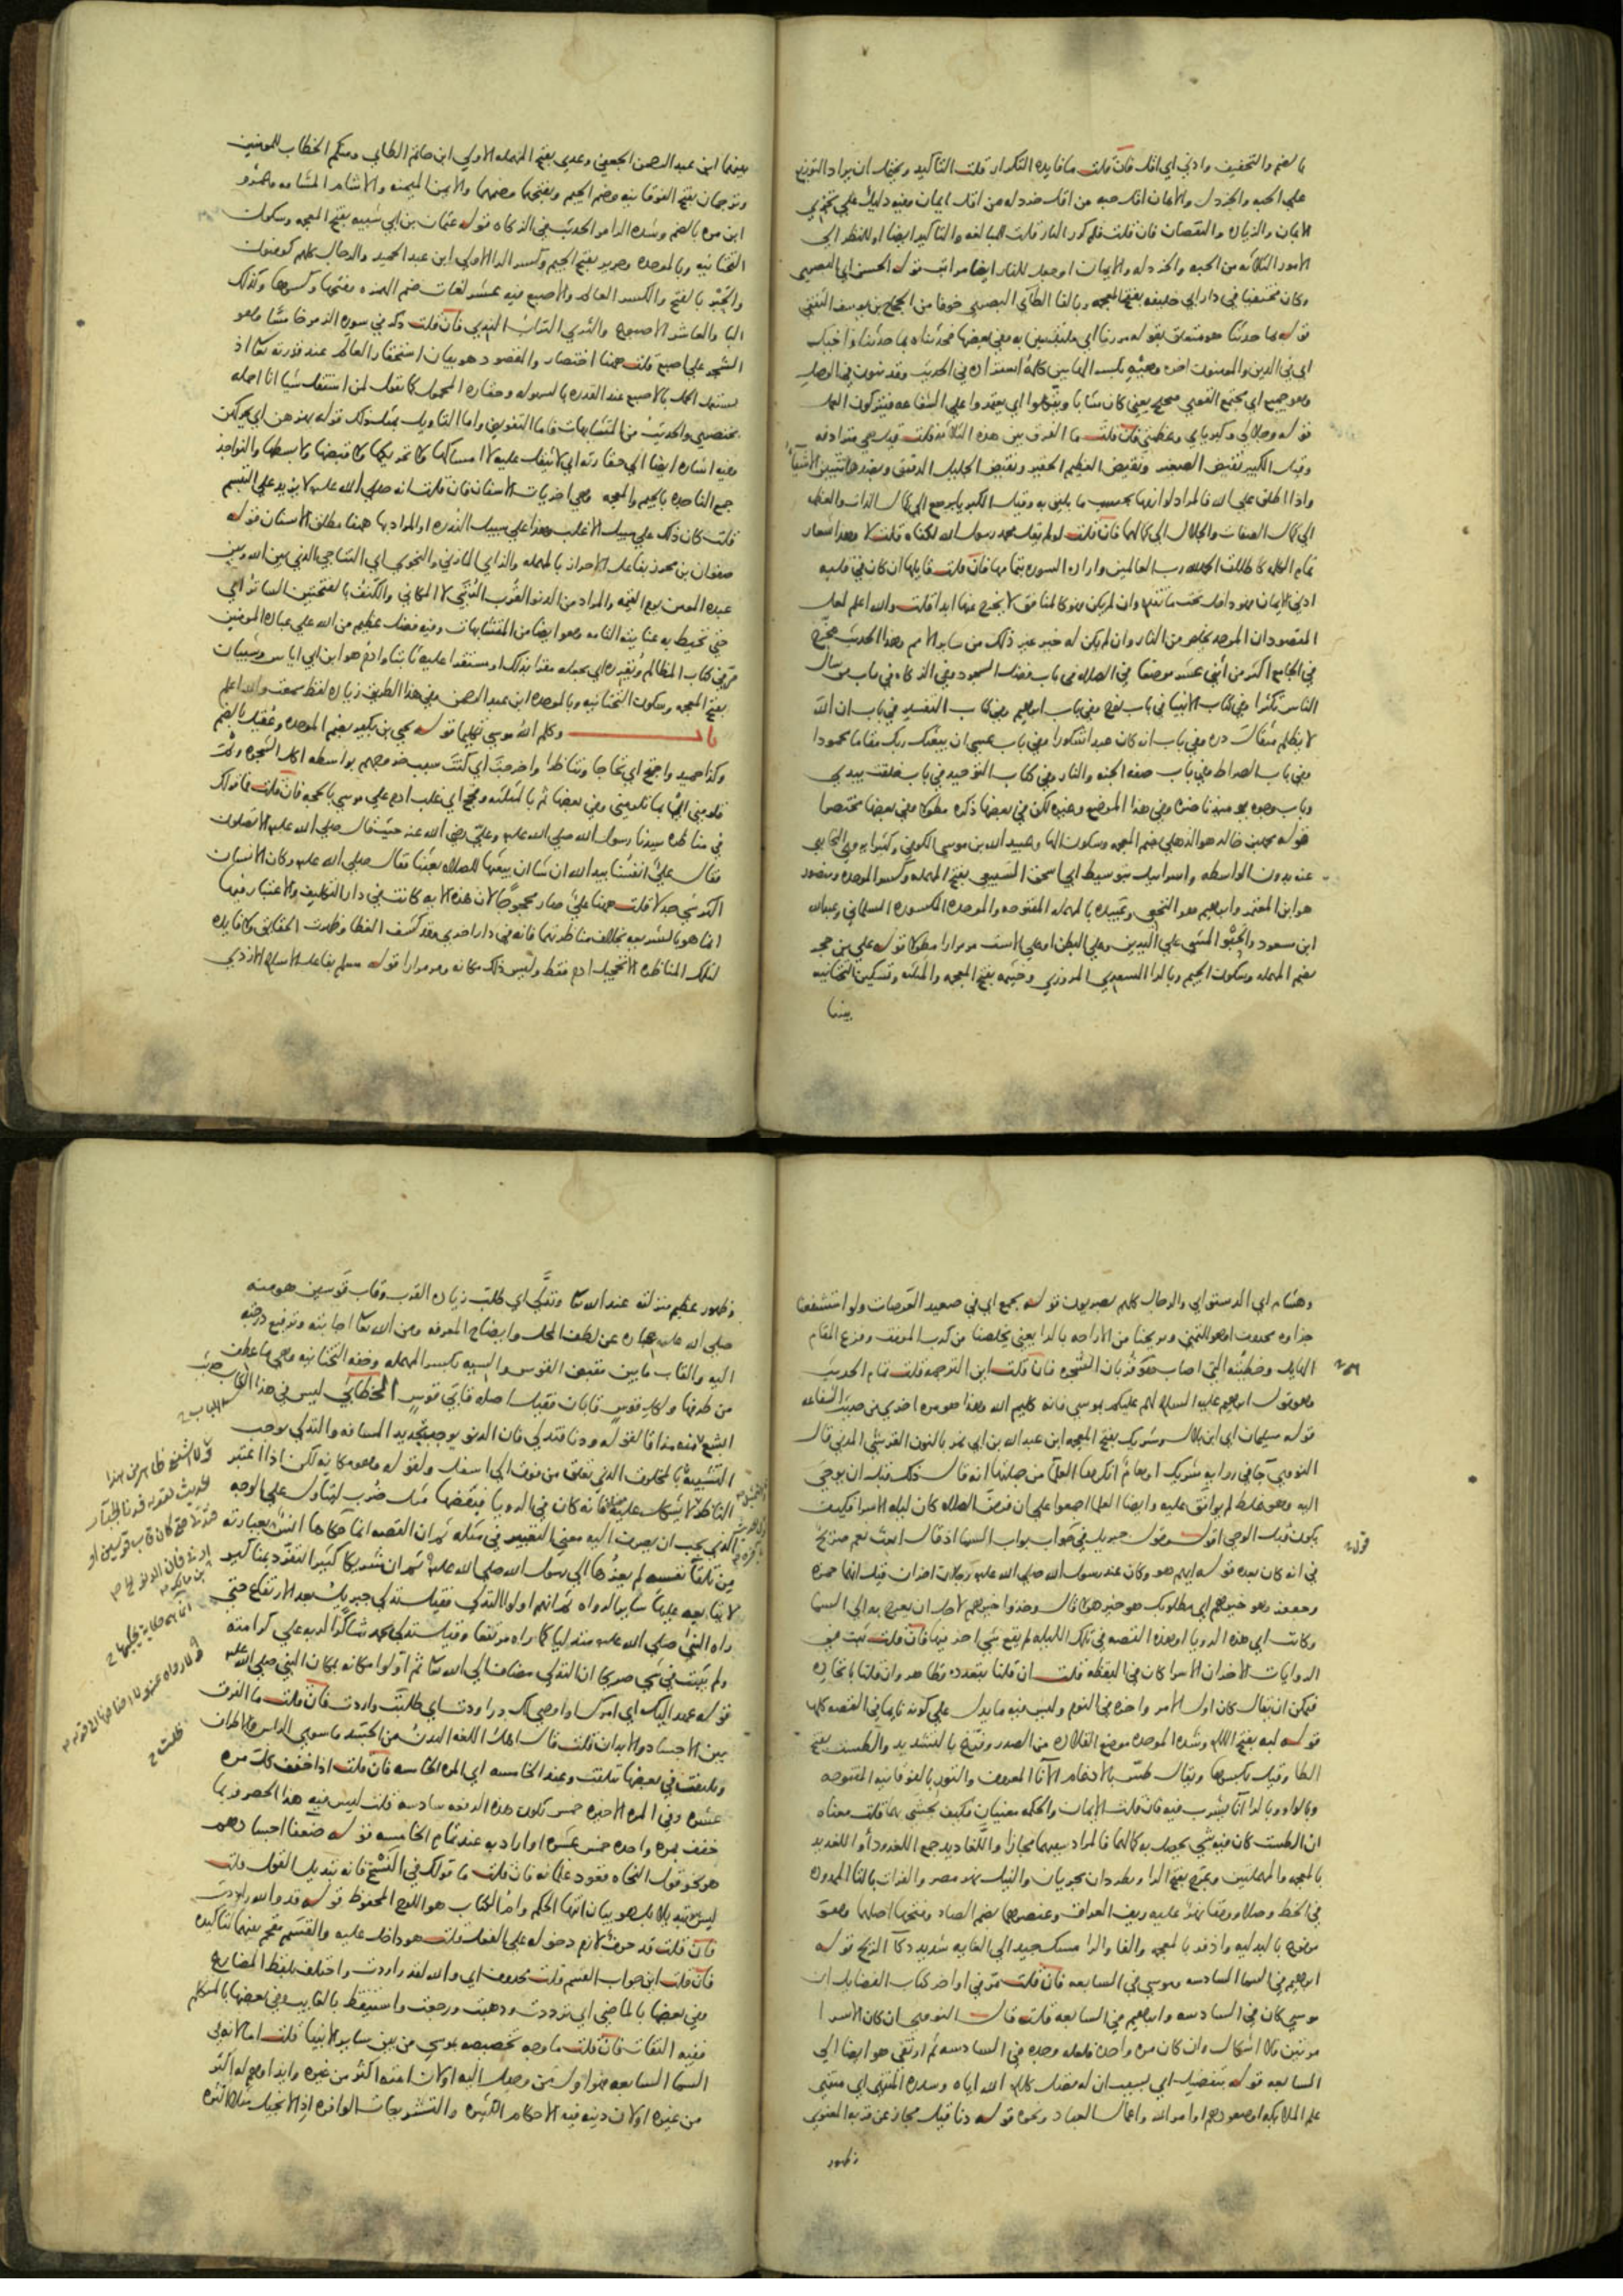 بالضم والتخفيف وادني اي اقل فان قلت ما فايده التكرار قلت التاكيد ويحتمل ان يراد التوزيع
علي الحبه والخردل والايمان اقل حبه من اقل خردله من اقل ايمان وفيه دليل علي تجزي
الايمان والزياده والنقصان فان قلت فلم كرر النار قلت للمبالغه والتاكيد ايضا او للنظر الي
الامور الثلاثه من الحبه والخردله والايمان او جعل للنار ايضا مراتب قوله الحسن اي البصري
وكان مختفيا في دار ابي خليفه بفتح المعجمه وبالفا الطائي البصري خوفا من الحجاج بن يوسف الثقفي
قوله بما حدثنا هو متعلق بقوله مررنا اي متلبسين به وفي بعضها فحدثناه بما حدثنا واخيك
اي في الدين والمومنون اخوه وهيه بكسر الهاين كلمه استزاده في الحديث وقد تنون في الوصل
وهو جميع اي مجتمع القوي صحيح يعني كان شابا ويتكلوا اي يعتمدوا علي الشفاعه فيتركون العمل
قوله وجلالي وكبريايي وعظمتي فان قلت ما الفرق بين هذه الثلاثه قلت قيل هي مترادفه
وقيل الكبير نقيض الصغير ونقيض العظيم الحقير ونقيض الجليل الدقيق وبضدها تتبين الاشيا
واذا اطلق علي الله فالمراد لوازمها بحسب ما يليق به وقيل الكبريا يرجع الي كمال الذات والعظمه
الي كمال الصفات والجلال الي كمالهما فان قلت لو لم يقل محمد رسول الله لكفاه قلت لا وهذا شعار
تمام الكلمه كاطلاق الحمد لله رب العالمين واراده السوره بتمامها فان قلت قايلها ان كان في قلبه
ادني الايمان فهو داخل تحت ما تقدم وان لم يكن فهو كالمنافق لا يخرج منها ابدا قلت والله اعلم لعل
المقصود ان الموحد يخلص من النار وان لم يكن له خير غير ذلك من ساير الامم وهذا الحديث مخرج
في الجامع اكثر من اثني عشر موضعا في الصلاه في باب فضل السجود وفي الزكاه في باب من سال
الناس تكثرا وفي كتاب الانبيا في باب نوح وفي باب ابراهيم وفي كتاب التفسير في باب ان الله
لا يظلم مثقال ذره وفي باب انه كان عبدا شكورا وفي باب عسي ان يبعثك ربك مقاما محمودا
وفي باب الصراط وفي باب صفه الجنه والنار وفي كتاب التوحيد في باب خلقت بيدي
وباب وجوه يوميذ ناضره وفي هذا الموضع وغيره لكن في بعضها ذكره مطولا وفي بعضها مختصرا
قوله محمد بن خالد هو الذهلي بضم المعجمه وسكون الها وعبيد الله بن موسي الكوفي وكثيرا يروي البخاري
عنه بدون الواسطه واسراييل بتوسيط ابي اسحق السبيعي بفتح المهمله وكسر الموحده ومنصور
هو ابن المعتمر وابراهيم هو النخعي وعبيده بالمهمله المفتوحه والموحده المكسوره السلماني وعبدالله
ابن مسعود والحبو المشي علي اليدين وعلي البطن او علي الاست مر مرارا مطولا قوله علي بن حجر
بضم المهمله وسكون الجيم وبالرا السعدي المروزي وخيثمه بفتح المعجمه والمثلثه وتسكين التحتانيه
بينهما
بينهما ابن عبد الرحمن الجعفي وعدي بفتح المهمله الاولي ابن حاتم الطايي ومنكم الخطاب للمومنين
وترجمان بفتح الفوقانيه وضم الجيم وبفتحهما وضمهما والايمن الميمنه والاشام المشامه وعمرو
ابن مره بالضم وشده الرا مر الحديث في الزكاه قوله عثمان بن ابي شيبه بفتح المعجمه وسكون
التحتانيه وبالموحده وجرير بفتح الجيم وكسر الرا الاولي ابن عبد الحميد والرجال كلهم كوفيون
والحبر بالفتح والكسر العالم والاصبع فيه عشر لغات ضم الهمزه وفتحها وكسرها وكذلك
البا والعاشر الاصبوع والثري التراب الندي فان قلت ذكر في سوره الزمر خامسا وهو
الشجر علي اصبع قلت ههنا اختصار والمقصود هو بيان استحقار العالم عند قدرته تعا اذ
يستعمل الحمل بالاصبع عند القدره بالسهوله وحقاره المحمول كما تقول لمن استثقل شيا انا احمله
بخنصري والحديث من المتشابهات فاما التفويض واما التاويل بمثل ذلك قوله يهزهن اي يحركهن
وفيه اشاره ايضا الي حقارته اي لا يثقل عليه لا امساكها ولا تحريكها ولا قبضها ولا بسطها والنواجذ
جمع الناجذه بالجيم والمعجمه وهي اخريات الاسنان فان قلت انه صلي الله عليه لا يزيد علي التبسم
قلت كان ذلك علي سبيل الاغلب وهذا علي سبيل الندره او المراد بها ههنا مطلق الاسنان قوله
صفوان بن محرز بفاعل الاحراز بالمهمله والزاي المازني والنجوي اي التناجي الذي بين الله وبين
عبده المومن يوم القيمه والمراد من الدنو القرب الرتبي لا المكاني والكنف بالفتحتين الساتر اي
حتي تحيط به عنايته التامه وهو ايضا من المتشابهات وفيه فضل عظيم من الله علي عباده المومنين
مر في كتاب المظالم ويقرره اي يجعله مقرا بذلك او مستقرا عليه ثابتا وادم هو ابن ابي اياس وشيبان
بفتح المعجمه وسكون التحتانيه وبالموحده ابن عبد الرحمن وفي هذا الطريق زياده لفظ سمعت والله اعلم
باب وكلم الله موسي تكليما قوله يحيي بن بكير بضم الموحده وعقيل بالضم
وكذا حميد واحتج اي تحاجا وتناظرا واخرجت اي كنت سبب خروجهم بواسطه اكل الشجره وثم
تلومني اي بما تلومني وفي بعضها ثم بالمثلثه وحج اي غلب ادم علي موسي بالحجه فان قلت فما قولك
في مناظره سيدنا رسول الله صلي الله عليه وعلي رضي الله عنه حيث قال صلي الله عليه الا تصلون
فقال علي انفسنا بيد الله ان شا ان يبعثها للصلاه بعثنا فقال صلي الله عليه وكان الانسان
اكثر شي جدلا قلت ههنا علي صار محجوجا لان هذه الايه كانت في دار التكليف والاعتبار فيها
انما هو بالشريعه بخلاف مناظرتهما فانه في دار اخري وقد كشف الغطا وظهرت الحقايق ولا فايده
لتلك المناظره الا تخجيل ادم فقط وليس ذلك مكانه ومر مرارا قوله مسلم بفاعل الاسلام الازدي
وهشام اي الدستوايي والرجال كلهم بصريون قوله يجمع اي في صعيد العرصات ولو استشفعنا
جزاوه محذوف او هو للتمني ويريحنا من الاراحه بالرا يعني يخلصنا من كرب الموقف وفزع المقام
الهايل وخطيئته التي اصاب هو قربان الشجره فان قلت اين الترجمه قلت تمام الحديث
وهو قول ابراهيم عليه السلام لهم عليكم بموسي فانه كليم الله وهذا هو مره اخري من حديث الشفاعه
قوله سليمان اي ابن بلال وشريك بفتح المعجمه ابن عبد الله بن ابي نمر بالنون القرشي المدني قال
النووي جا في روايه شريك اوهام انكرها العلما من جملتها انه قال ذلك قبل ان يوحي
اليه وهو غلط لم يوافق عليه وايضا العلما اجمعوا علي ان فرض الصلاه كان ليله الاسرا فكيف
يكون قبل الوحي اقول وقول جبريل في جواب بواب السما اذ قال ابعث نعم صريح
في انه كان بعده قوله ايهم هو وكان عند رسول الله صلي الله عليه رجلان اخران قيل انهما حمزه
وجعفر وهو خيرهم اي مطلوبك هو خير هولا قال وخذوا خيرهم لاجل ان يعرج به الي السما
وكانت اي هذه الرويا او هذه القصه في تلك الليله لم يقع شي اخر فيها فان قلت ثبت في
الروايات الاخر ان الاسرا كان في اليقظه قلت ان قلنا بتعدده فظاهر وان قلنا باتحاده
فيمكن ان يقال كان اول الامر واخره في النوم وليس فيه ما يدل علي كونه نايما في القصه كلها
قوله لبه بفتح اللام وشده الموحده موضع القلاده من الصدر وفتح بالتشديد والطست بفتح
الطا وقيل بكسرها ويقال طس بالادغام الانا المعروف والتور بالفوقانيه المفتوحه
وبالواو وبالرا انا يشرب فيه فان قلت الايمان والحكمه معنيان فكيف يحشي بهما قلت معناه
ان الطست كان فيه شي يحصل به كمالهما فالمراد سببهما مجازا واللغاديد جمع اللغدود او اللغديد
بالمعجمه والمهملتين وعرج بفتح الرا ويطردان يجريان والنيل نهر مصر والفرات بالتا الممدوده
في الخط وصلا ووقفا نهر عليه ريف العراق وعنصرهما بضم الصاد وفتحها اصلهما وهو
مرفوع بالبدليه واذفر بالمعجمه والفا والرا مسك جيد الي الغايه شديد ذكا الريح قوله
ابراهيم في السما السادسه وموسي في السابعه فان قلت مر في اواخر كتاب الفضايل ان
موسي كان في السادسه وابراهيم في السابعه قلت قال النووي ان كان الاسرا
مرتين فلا اشكال وان كان مره واحده فلعله وجده في السادسه ثم ارتقي هو ايضا الي
السابعه قوله بتفضيل اي بسبب ان له بفضل كلام الله اياه وسدره المنتهي اي منتهي
علم الملايكه او صعودهم او امر الله واعمال العباد ونحوه قوله دنا قيل مجاز عن قربه المعنوي
وظهور
وظهور عظيم منزلته عند الله تعا وتدلي اي طلب زياده القرب وقاب قوسين هو منه
صلي الله عليه عباره عن لطف المحل وايضاح المعرفه ومن الله تعا اجابته وترفيع درجته
اليه والقاب ما بين مقبض القوس والسيه بكسر المهمله وخفه التحتانيه وهي ما عطف
من طرفها ولكل قوس قابان فقيل اصله قابي قوس الخطابي ليس في هذا الكتاب حديث
اشنع منه مذاقا لقوله ودنا فتدلي فان الدنو يوجب تحديد المسافه والتدلي يوجب
التشبيه بالمخلوق الذي تعلق من فوق الي اسفل ولقوله وهو مكانه لكن اذا اعتبر
الناظر لا يشكل عليه فانه كان في الرويا فبعضها مثل ضرب ليتاول علي الوجه
الذي يجب ان يصرف اليه معني التعبير في مثله ثم ان القصه انما حكاها انس بعبارته
من تلقا نفسه لم يعزها الي رسول الله صلي الله عليه ثم ان شريكا كثير التفرد بمناكير
لا يتابعه عليها ساير الرواه ثم انهم اولوا التدلي فقيل تدلي جبريل بعد الارتفاع حتي
راه النبي صلي الله عليه متدليا كما راه مرتفعا وقيل تدلي محمد شاكرا لربه علي كرامته
ولم يثبت في شي صريحا ان التدلي مضاف الي الله تعا ثم اولوا مكانه بمكان النبي صلي الله عليه
قوله عهد اليك اي امرك او اوصي لك وراودت اي طلبت واردت فان قلت ما الفرق
بين الاجساد والابدان قلت قال اهل اللغه البدن من الجسد ما سوي الراس والاطراف
ويلتفت في بعضها يتلفت وعند الخامسه اي المره الخامسه فان قلت اذا خفف كل مره
عشره وفي المره الاخيره خمس تكون هذه الدفعه سادسه قلت ليس فيه هذا الحصر فربما
خفف بمره واحده خمس عشره او اراد به عند تمام الخامسه قوله ضعفا اجسادهم
فان قلت ما قولك في النسخ فانه تبديل القول قلت
ليس تبديلا بل هو بيان انتها الحكم وام الكتاب هو اللوح المحفوظ قوله قد والله راودت
فان قلت قد حرف لازم دخوله علي الفعل قلت هو داخل عليه والقسم مقحم بينهما لتاكيده
فان قلت اين جواب القسم قلت محذوف اي والله لقد راودت واختلف بلفظ المضارع
وفي بعضها بالماضي اي ترددت وذهبت ورجعت واستيقظ بالغايب وفي بعضها بالمتكلم
ففيه التفات فان قلت ما وجه تخصيصه موسي من بين ساير الانبيا قلت اما لانه في
السما السابعه فهو اول من وصل اليه او لان امته اكثر من غيره وايذاوهم له اكثر
من غيره او لان دينه فيه الاحكام الكثيره والتشريعات الوافره اذ الانجيل مثلا اكثره